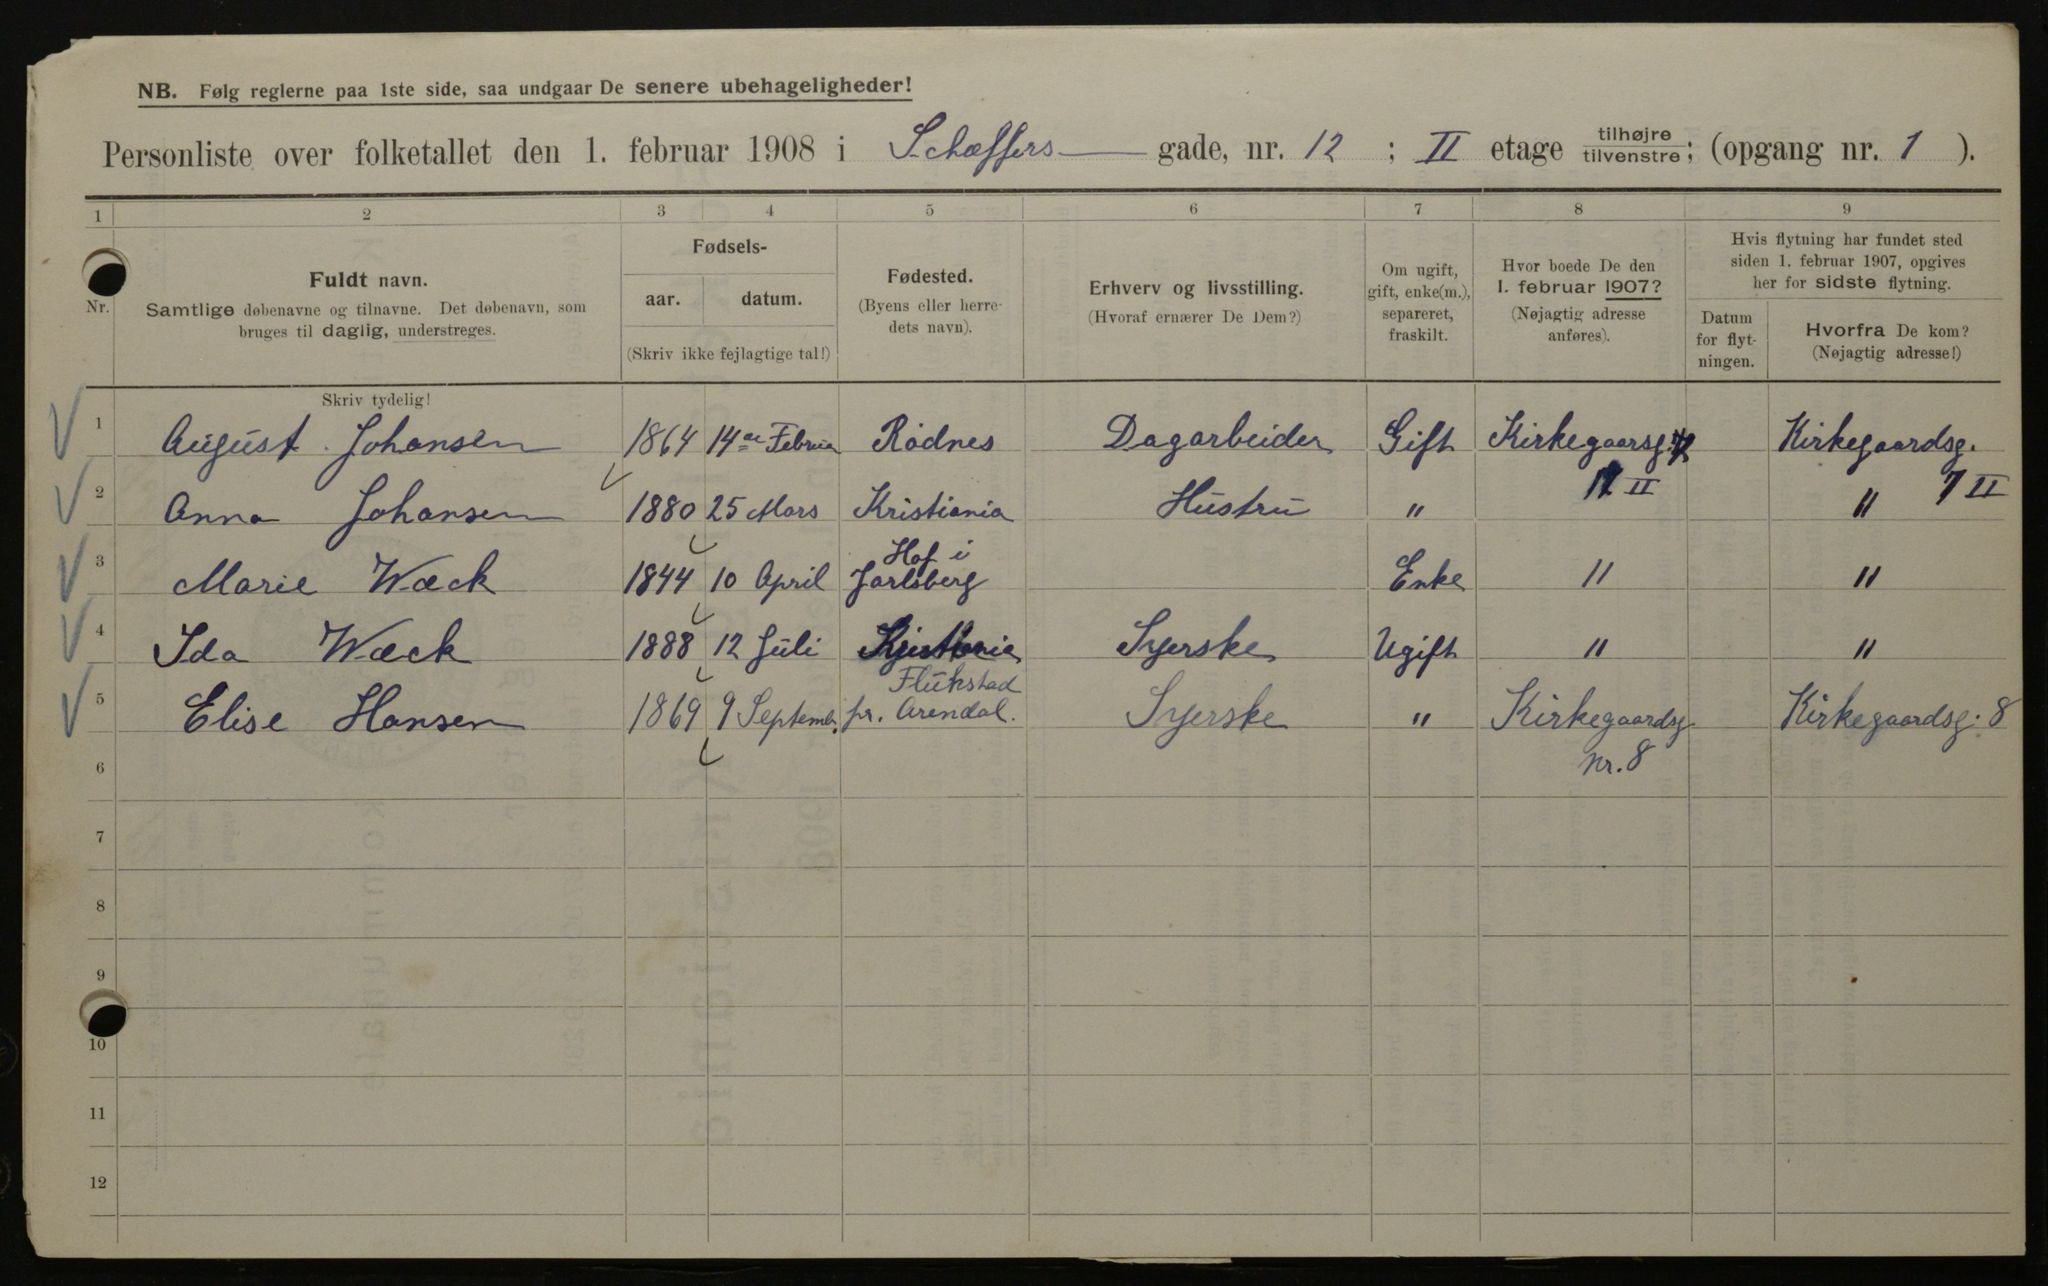 NB. Følg reglerne paa 1ste side, saa undgaar De senere ubehageligheder!
Personliste over folketallet den 1. februar 1908 i Schæffers gade, nr. 12 ; II etage tilhøjre tilvenstre; (opgang nr. 1 ).
1 2 3 4 5 6 7 8 9
Nr.
Fuldt navn.
Samtlige døbenavne og tilnavne. Det døbenavn, som
bruges til daglig, understreges.
Fødsels-
aar. datum.
(Skriv ikke fejlagtige tal!)
Fødested.
(Byens eller herre-
dets navn).
Erhverv og livsstilling.
(Hvoraf ernærer De Dem?)
Om ugift,
gift, enke(m.),
separeret,
fraskilt.
Hvor boede De den
1. februar 1907?
(Nøjagtig adresse
anføres).
Hvis flytning har fundet sted
siden 1. februar 1907, opgives
her for sidste flytning.
Datum
for flyt-
ningen.
Hvorfra De kom?
(Nøjagtig adresse!)
Skriv tydelig!
1 August Johansen 1864 14de Februa Rødnes Dagarbeider Gift Kirkegaarsg. Kirkegaardsg.
II 7 II
2 Anna Johansen 1880 25 Mars Kristiania Hustru " "
Hof i
3 Marie Wæck 1844 10 April Jarlsberg Enke " "
4 Ida Wæck 1888 12 Juli Kristiania Syerske Ugift " "
pr. Arendal.
5 Elise Hansen 1869 9 Septemb. Syerske " Kirkegaardsg. Kirkegaardsg. 8
nr. 8
6
7
8
9
10
11
12